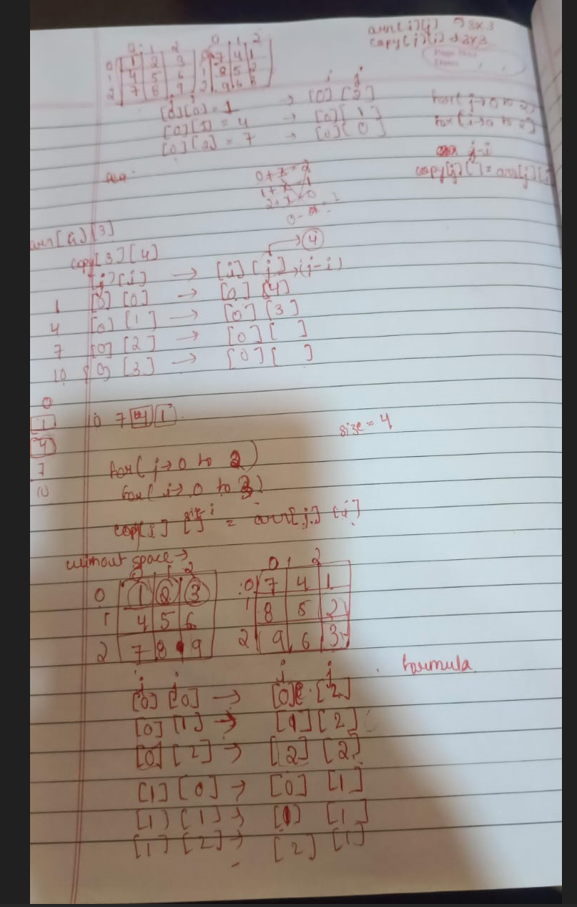 arr[i][j] → 3x3
copy[j][i] → 3x3
0 1 2
0 1 2
0 1 2 3
1 4 5 6
2 7 8 9
0 7 4 1
1 8 5 2
2 9 6 3
i j
[0][0] = 1 → [0][2]
[0][1] = 4 → [0][1]
[0][2] = 7 → [0][0]
for(j→0 to 2)
for(i→0 to 2)
j-i
copy[j][ ] = arr[i][
arr
arr[4][3]
copy[3][4]
4
[j][i] → [i][j] → (j-i)
1 [0][0] → [0][4]
4 [0][1] → [0][3]
7 [0][2] → [0][ ]
10 [0][3] → [0][ ]
0
1
4
7
10
10 7 4 1
size = 4
for(j→0 to 2)
for(i→0 to 3)
copy[j][size-i] = arr[i][j]
without space →
0 1 2
0 1 2 3
1 4 5 6
2 7 8 9
0 1 2
0 7 4 1
1 8 5 2
2 9 6 3
formula
i j i j
[0][0] → [0][2]
[0][1] → [1][2]
[0][2] → [2][2]
[1][0] → [0][1]
[1][1] → [1][1]
[1][2] → [2][1]